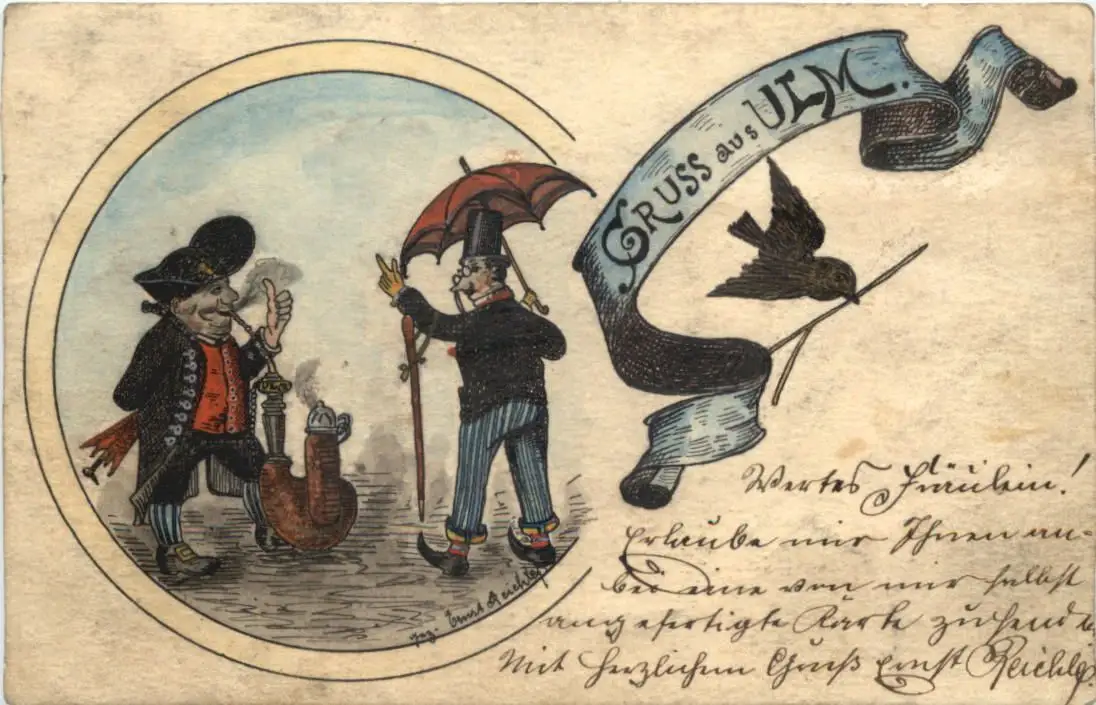 GRUSS aus ULM.
gez. Ernst Reichle
Wertes Fräulein!
Erlaube mir Ihnen an-
bei eine von mir selbst
angefertigte Karte zu senden.
Mit herzlichem Gruß Ernst Reichle.